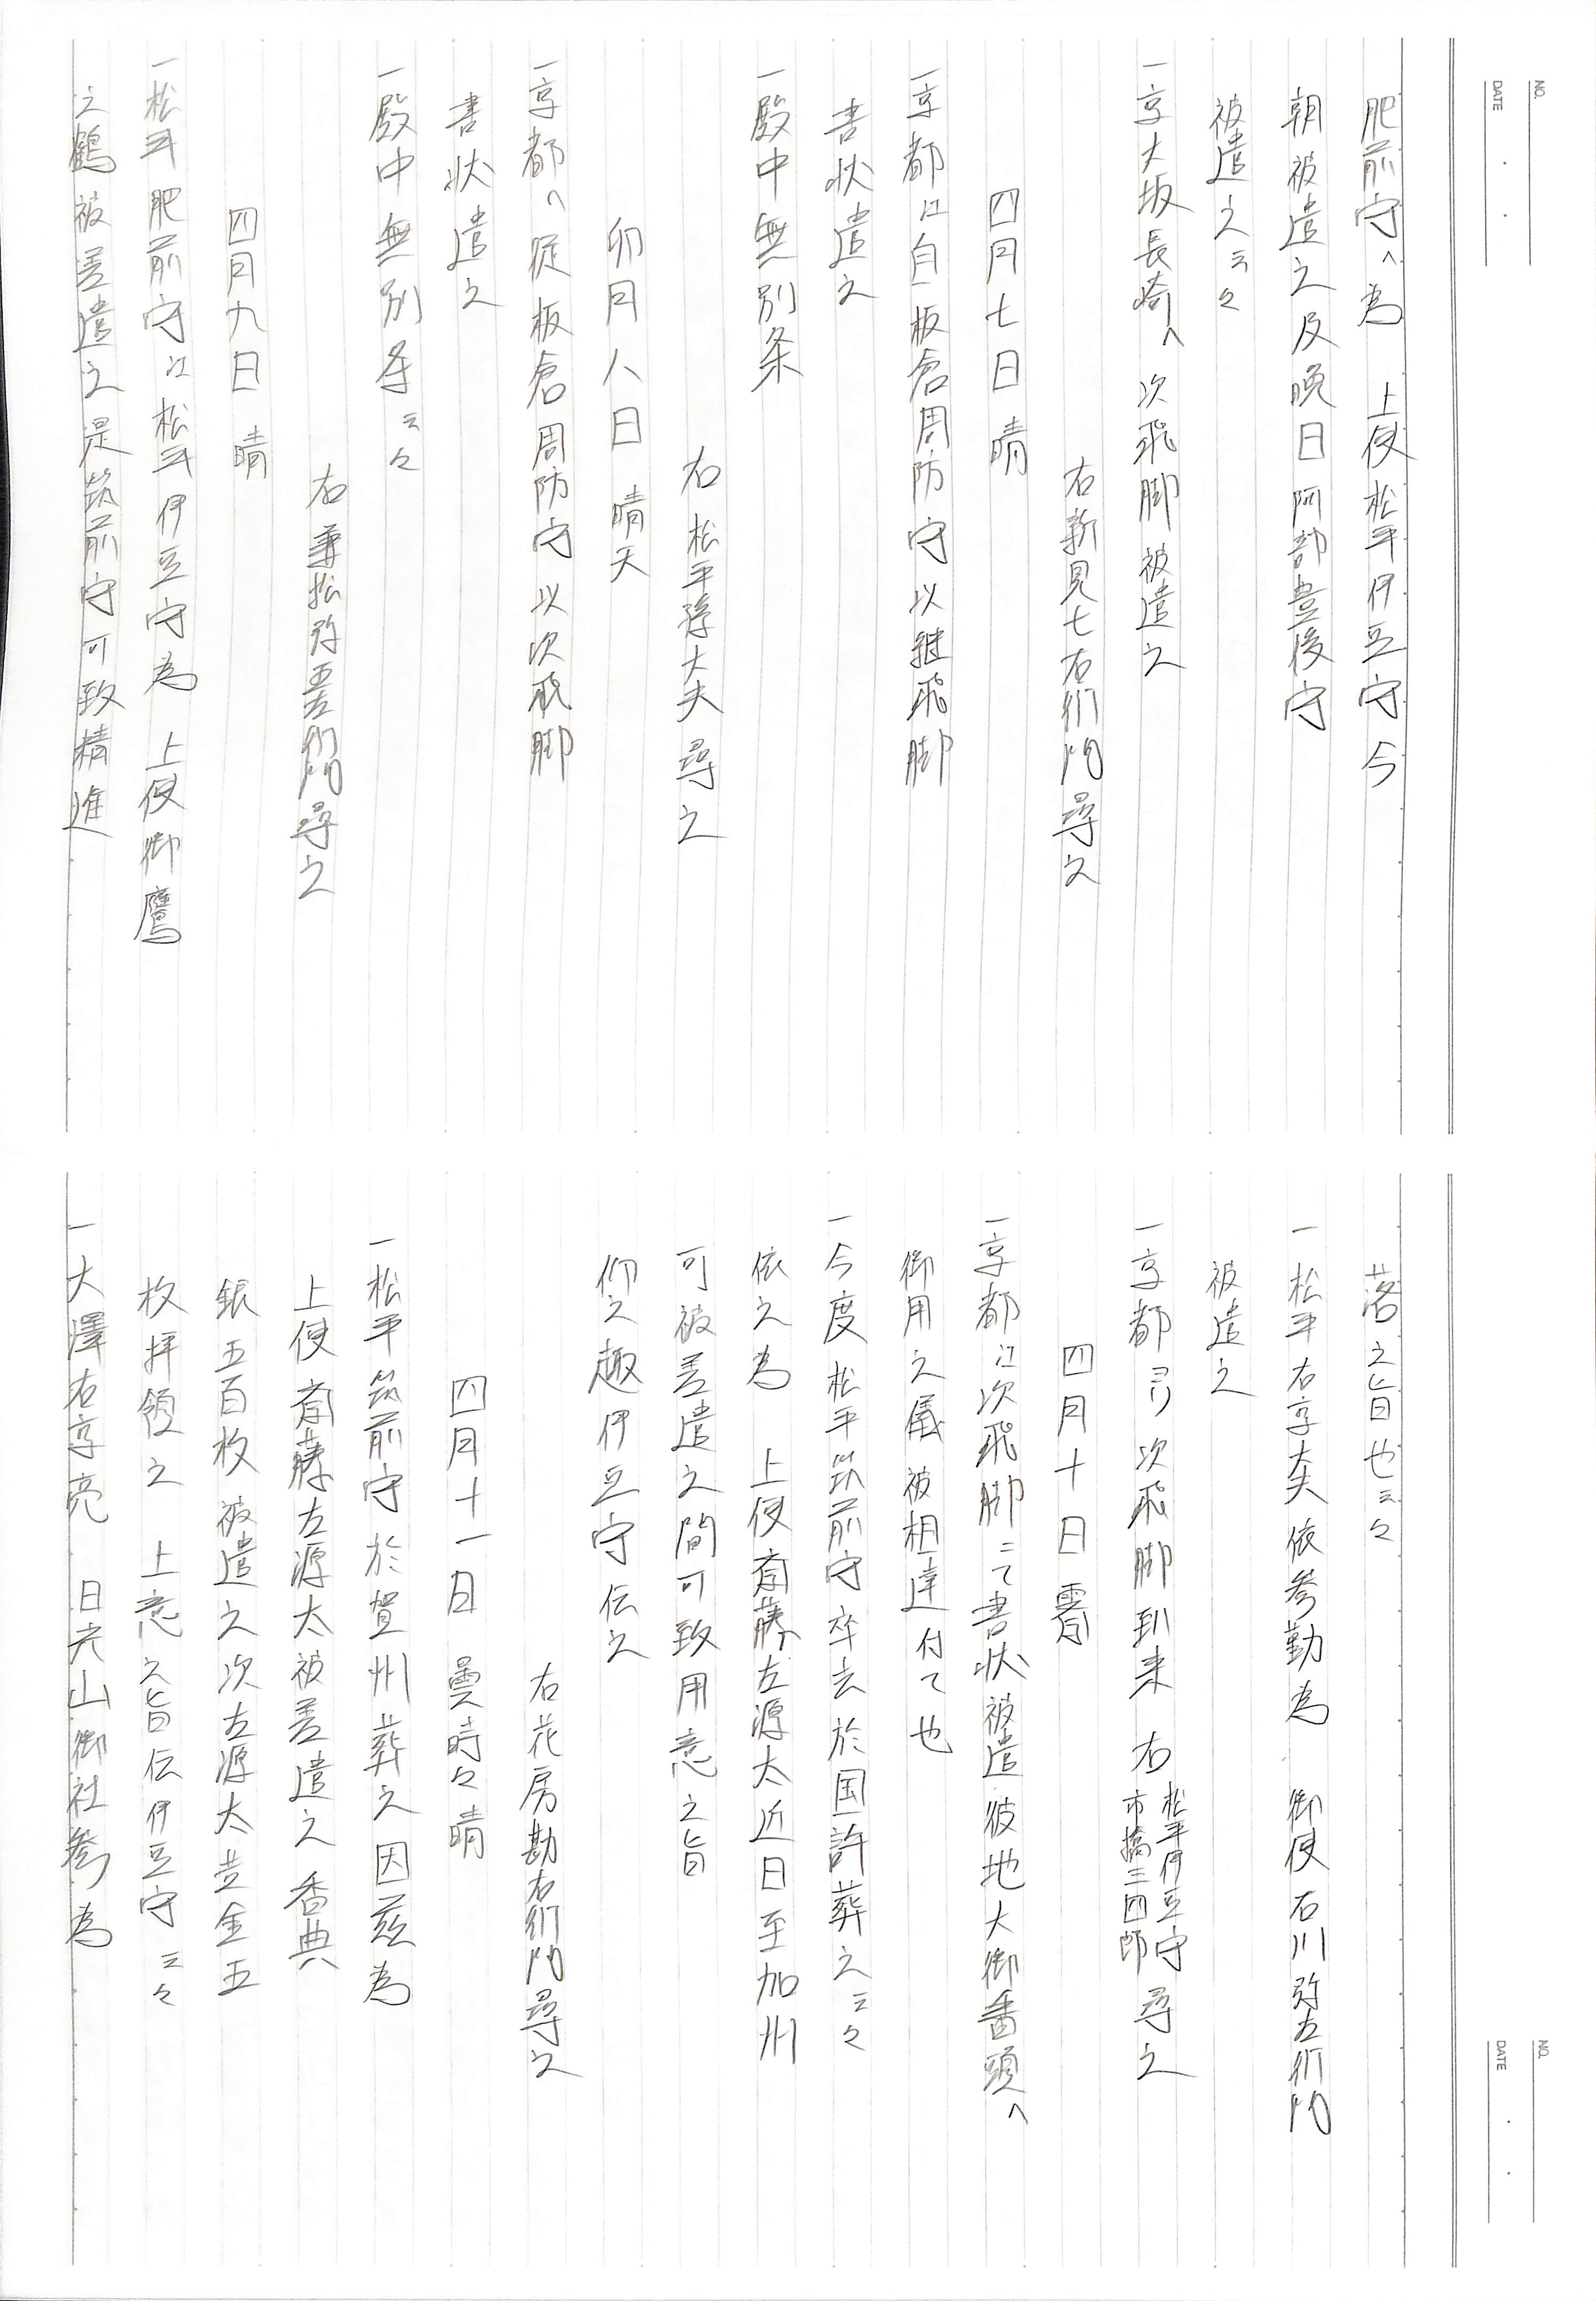 NO.
DATE
肥前守へ為　上使松平伊豆守今
朝被遣之及晩日阿部豊後守
被遣之云々
一京大坂長崎へ次飛脚被遣之
右新見七右衛門尋之
四月七日　晴
一京都江自板倉周防守以継飛脚
書状遣之
一殿中無別条
右松平隼大夫尋之
卯月八日　晴天
一京都へ従板倉周防守以次飛脚
書状遣之
一殿中無別条云々
右兼松弥五左衛門尋之
四月九日　晴
一松平肥前守江松平伊豆守為　上使御鷹
之鶴被差遣之是筑前守可致精進
NO.
DATE
落之旨也云々
一松平右京大夫依参勤為　御使石川弥左衛門
被遣之
一京都ヨリ次飛脚到来　右松平伊豆守市橋三四郎尋之
四月十日　霽
一京都江次飛脚ニて書状被遣彼地大御番頭へ
御用之儀被相達付て也
一今度松平筑前守卒去於国許葬之云々
依之為　上使斎藤左源太近日至加州
可被差遣之間可致用意之旨
仰之趣伊豆守伝之
右花房勘右衛門尋之
四月十一日　曇時々晴
一松平筑前守於賀州葬之因茲為
上使斎藤左源太被差遣之香典
銀五百枚被遣之次左源太江金五
枚拝領之　上意之旨伝伊豆守云々
一大澤右京亮　日光山御社参為